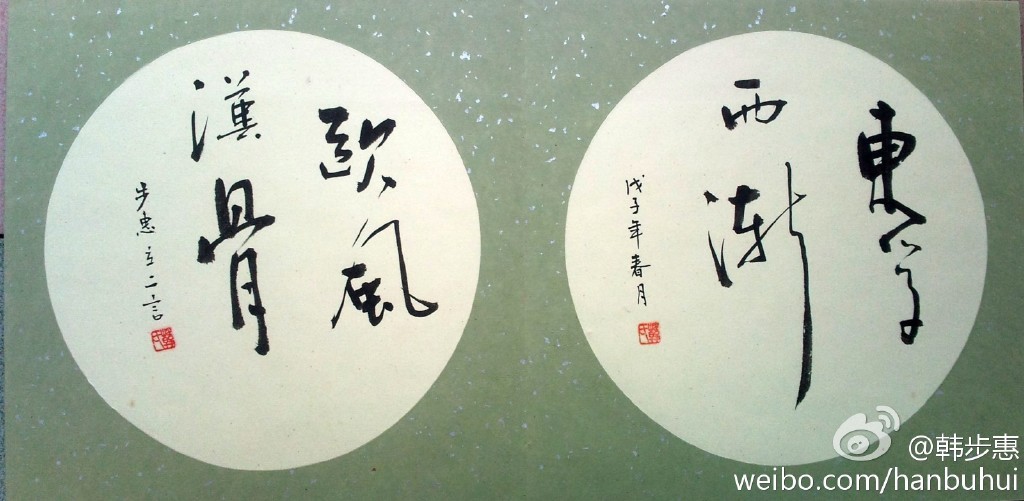 東学
西漸
戊子年春月
歐風
漢骨
步惠立二言
@韩步惠
weibo.com/hanbuhui